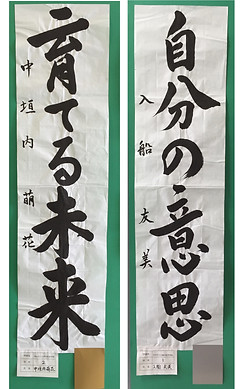 育てる未来
中垣内萌花
自分の意思
入船友美